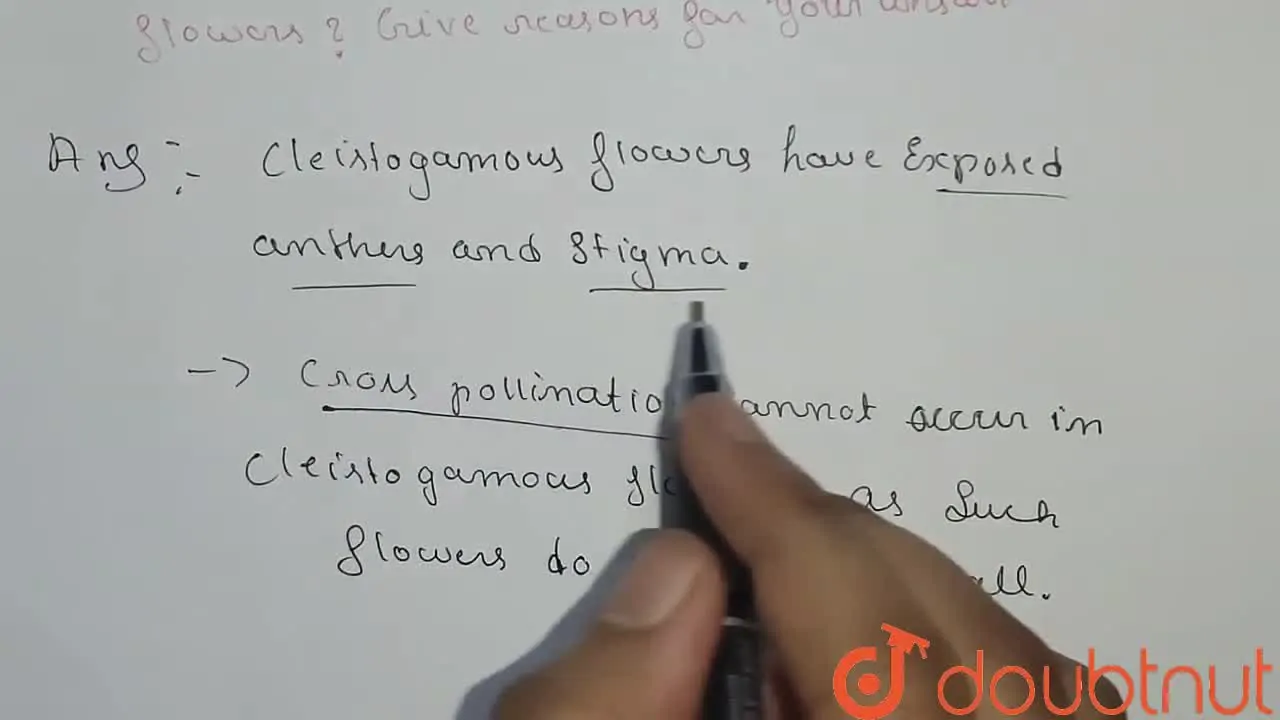 flowers? Give reasons for your answer
Ans :- Cleistogamous flowers have Exposed
anthers and Stigma.
-> Cross pollination cannot occur in
Cleistogamous as Such
flowers do all.
doubtnut